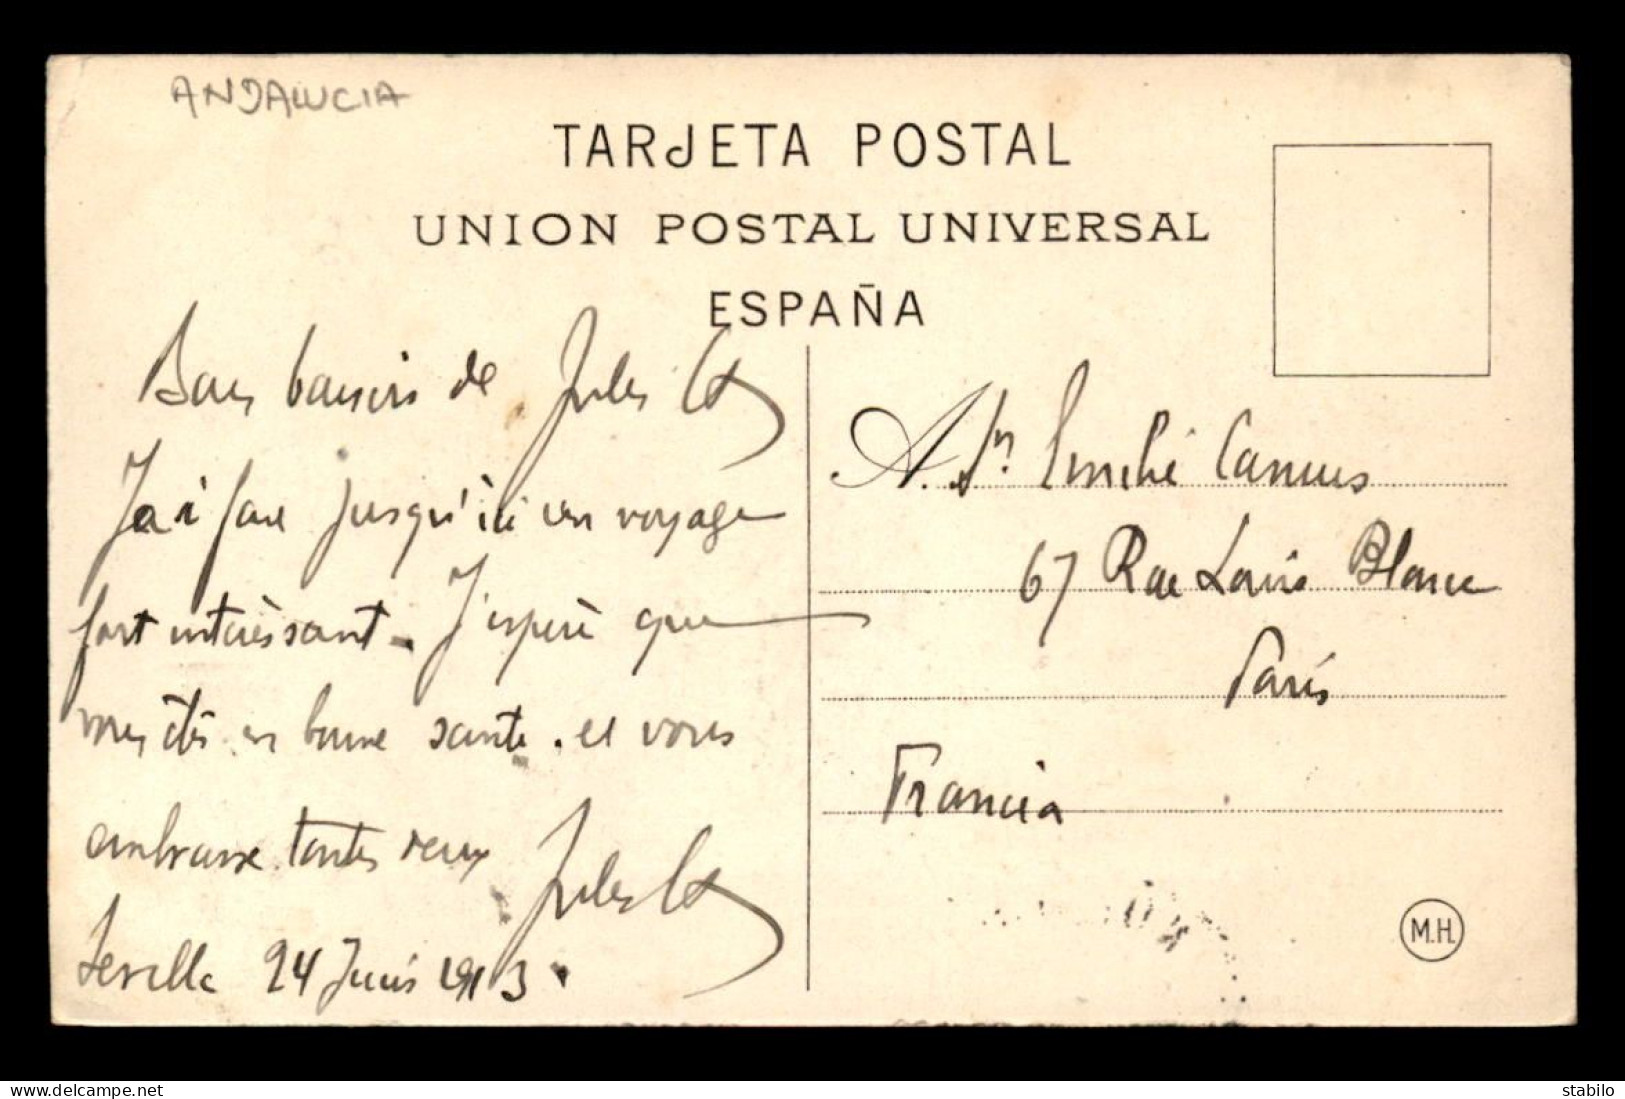 ANDALUCIA
TARJETA POSTAL
UNION POSTAL UNIVERSAL
ESPAÑA
Bons baisers de Jules
J'ai fait jusqu'ici un voyage
fort intèrèssant. J'espère que
vous ètes en bonne sante. et vous
embrasse toutes deux Jules
Sevilla 24 Junis 1913.
A. Emilie Camus
67 Rue Louis Blanc
Paris
Francia
M.H.
www.delcampe.net
stabilo